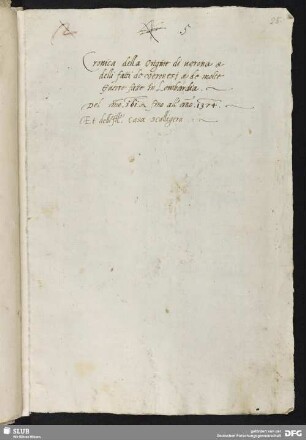 5
28.
Cronica della Origine di uerona e
delli fatti de ueronesi e de molte
guerre fatte In Lombardia.
Del año. fino all año. 1374.
Et dell Ill. casa scaligera
SLUB
Wir führen Wissen.
gefördert von der
Deutschen Forschungsgemeinschaft
DFG